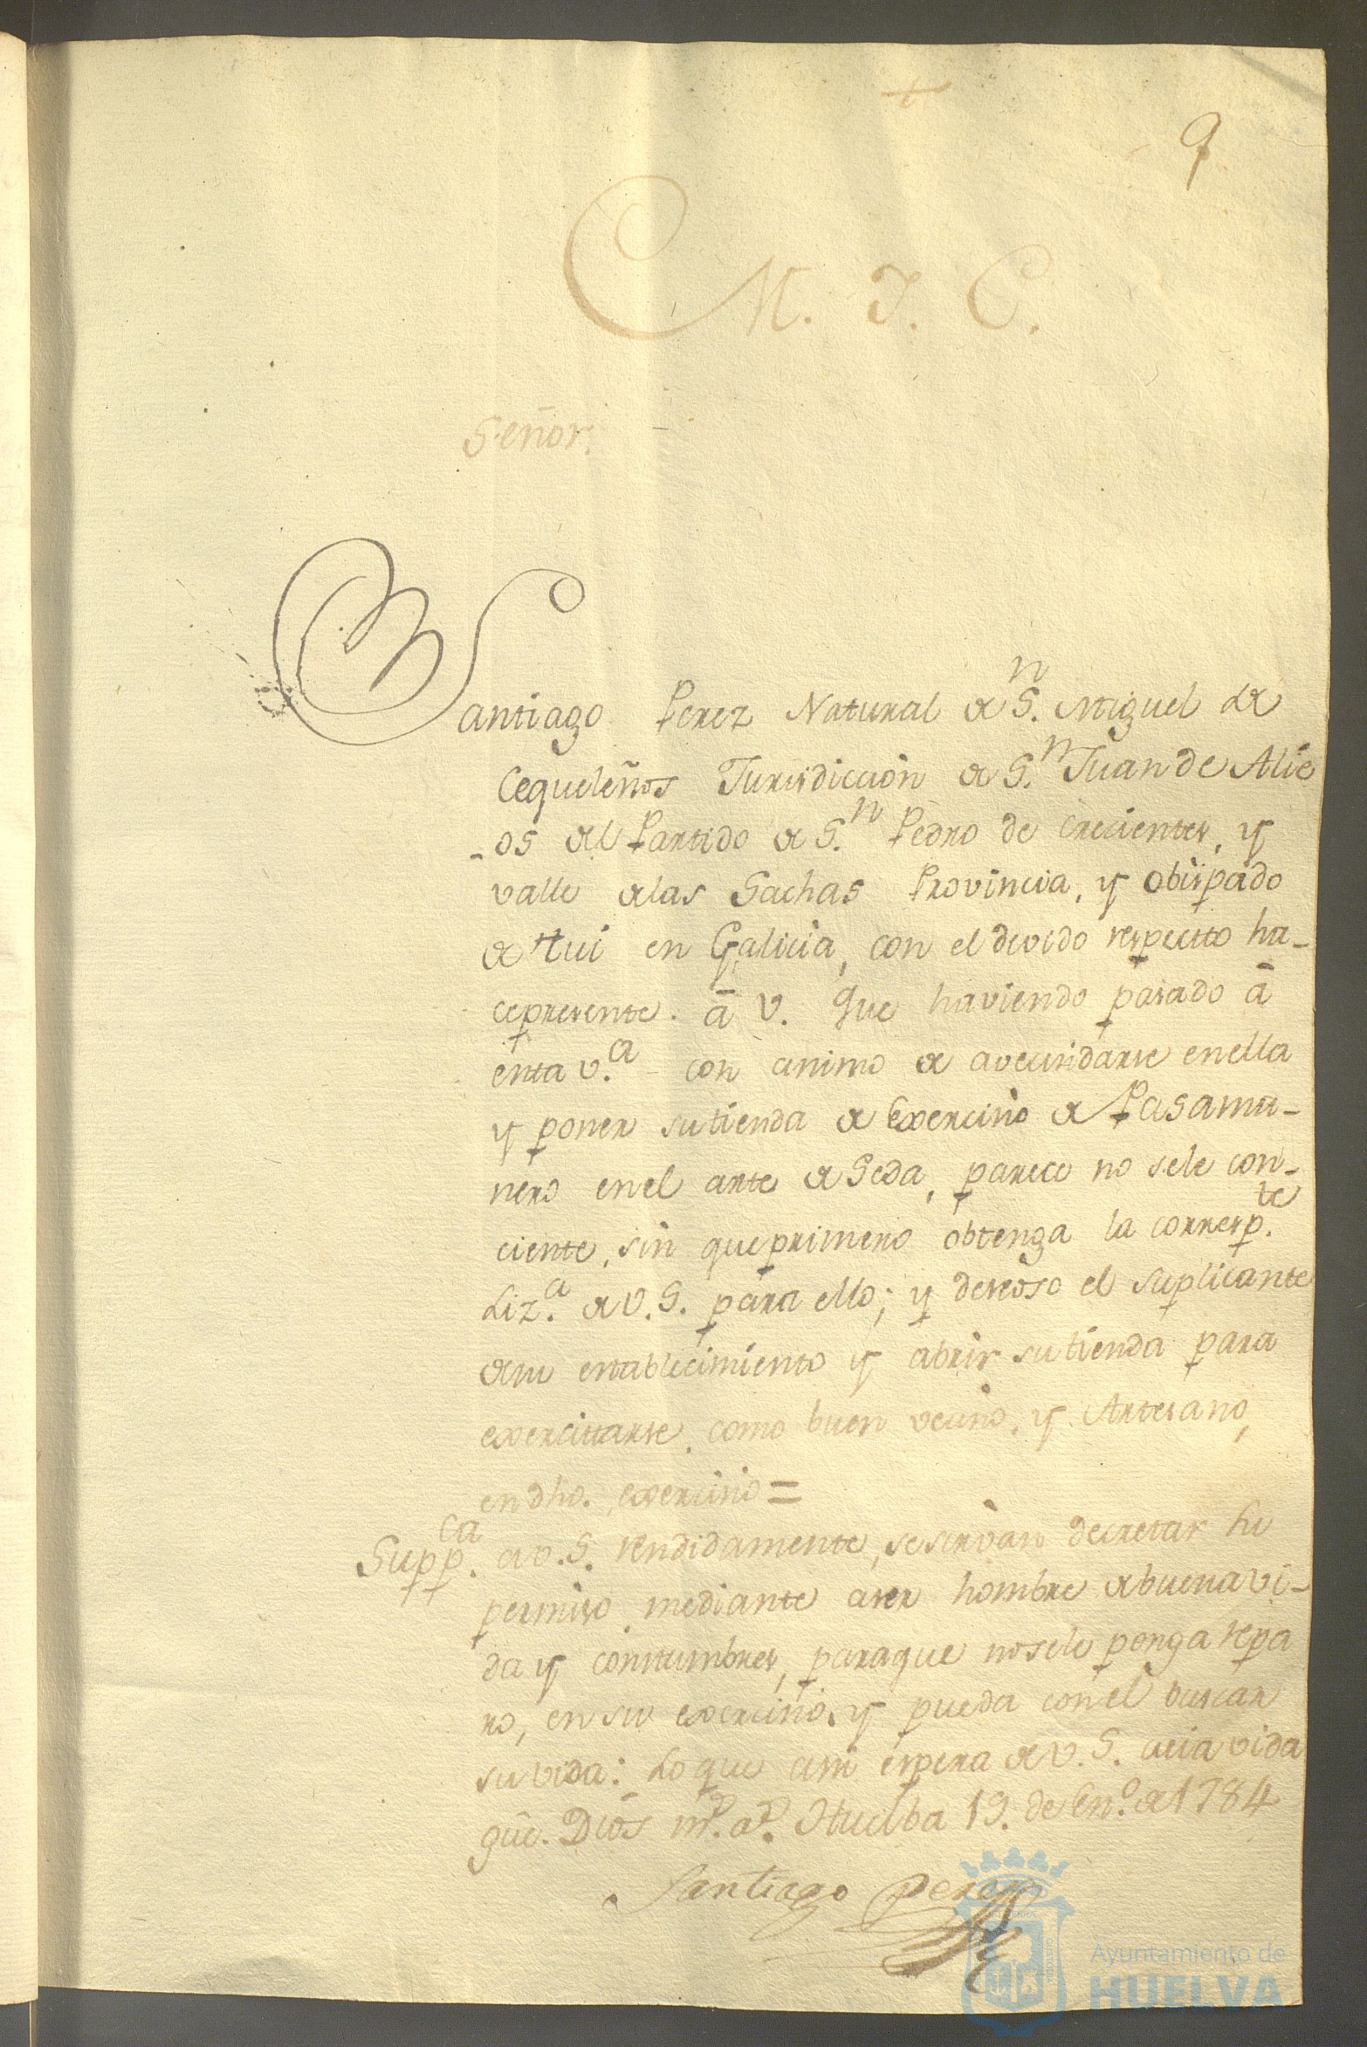 +
9
M. J. C.
Señor.
Santiago Perez Natural de Sn. Miguel de
Cequeleños Jurisdiccion de Sn. Juan de Alie
-os del Partido de Sn. Pedro de Crecientes, y
valle delas Sachas Provincia, y obispado
de tui en Galicia, con el devido respecto ha-
cepresente. â V. Que haviendo pasado â
esta v.a con animo de avecindarse enella
y poner su tienda de Exercicio de Pasama-
nero enel arte de Seda, parece no sele con-
ciente, sin queprimero obtenga la corresp.te
Liz.a de V.S. para ello; y deseoso el suplicante
desu establecimiento y abrir su tienda para
exercitarse como buen vecino, y Artesano,
en dho. exercicio =
Supp.ca a v.S. rendidamente, se sirvan decretar su
permiso mediante aser hombre de buena vi-
da y constumbres, paraque nosele ponga repa
ro, en su exercicio. y pueda con el buscar
su vida: Lo que asi espera de v.S. cuia vida
gũe. Dios m.s a.s. Huelba 19. de En.o de 1784
Santiago Perez
Ayuntamiento de
HUELVA